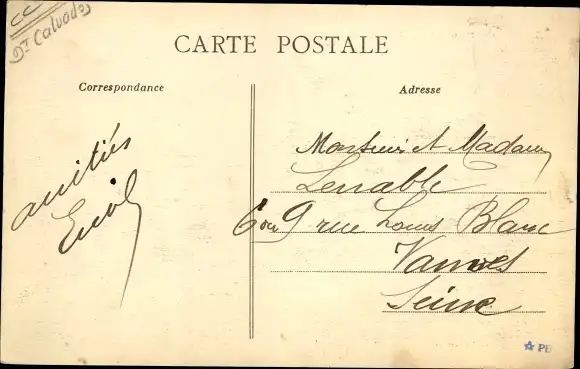 CC
Dt Calvados
CARTE POSTALE
Correspondance
Adresse
amitiés
Monsieur et Madame
6 ou 9 rue Louis Blanc
Vanves
Seine
PB